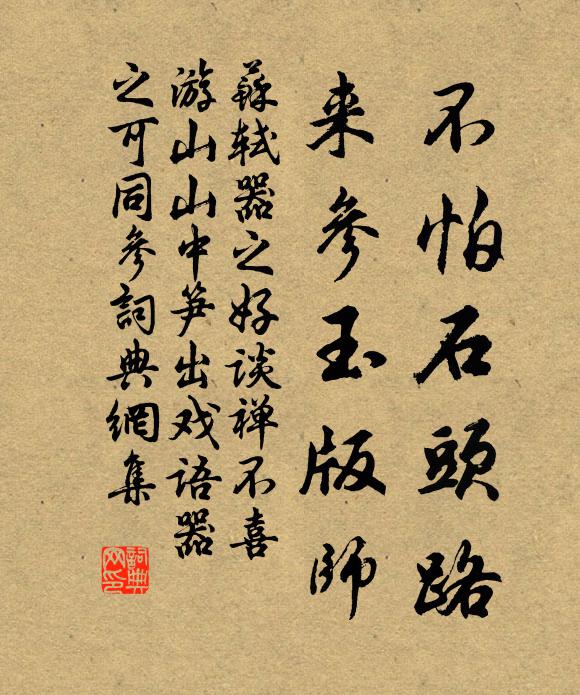 不怕石頭路
来參玉版師
蘇軾器之好談禅不喜
游山山中笋出戏语器
之可同參詞典網集
詞典
网印